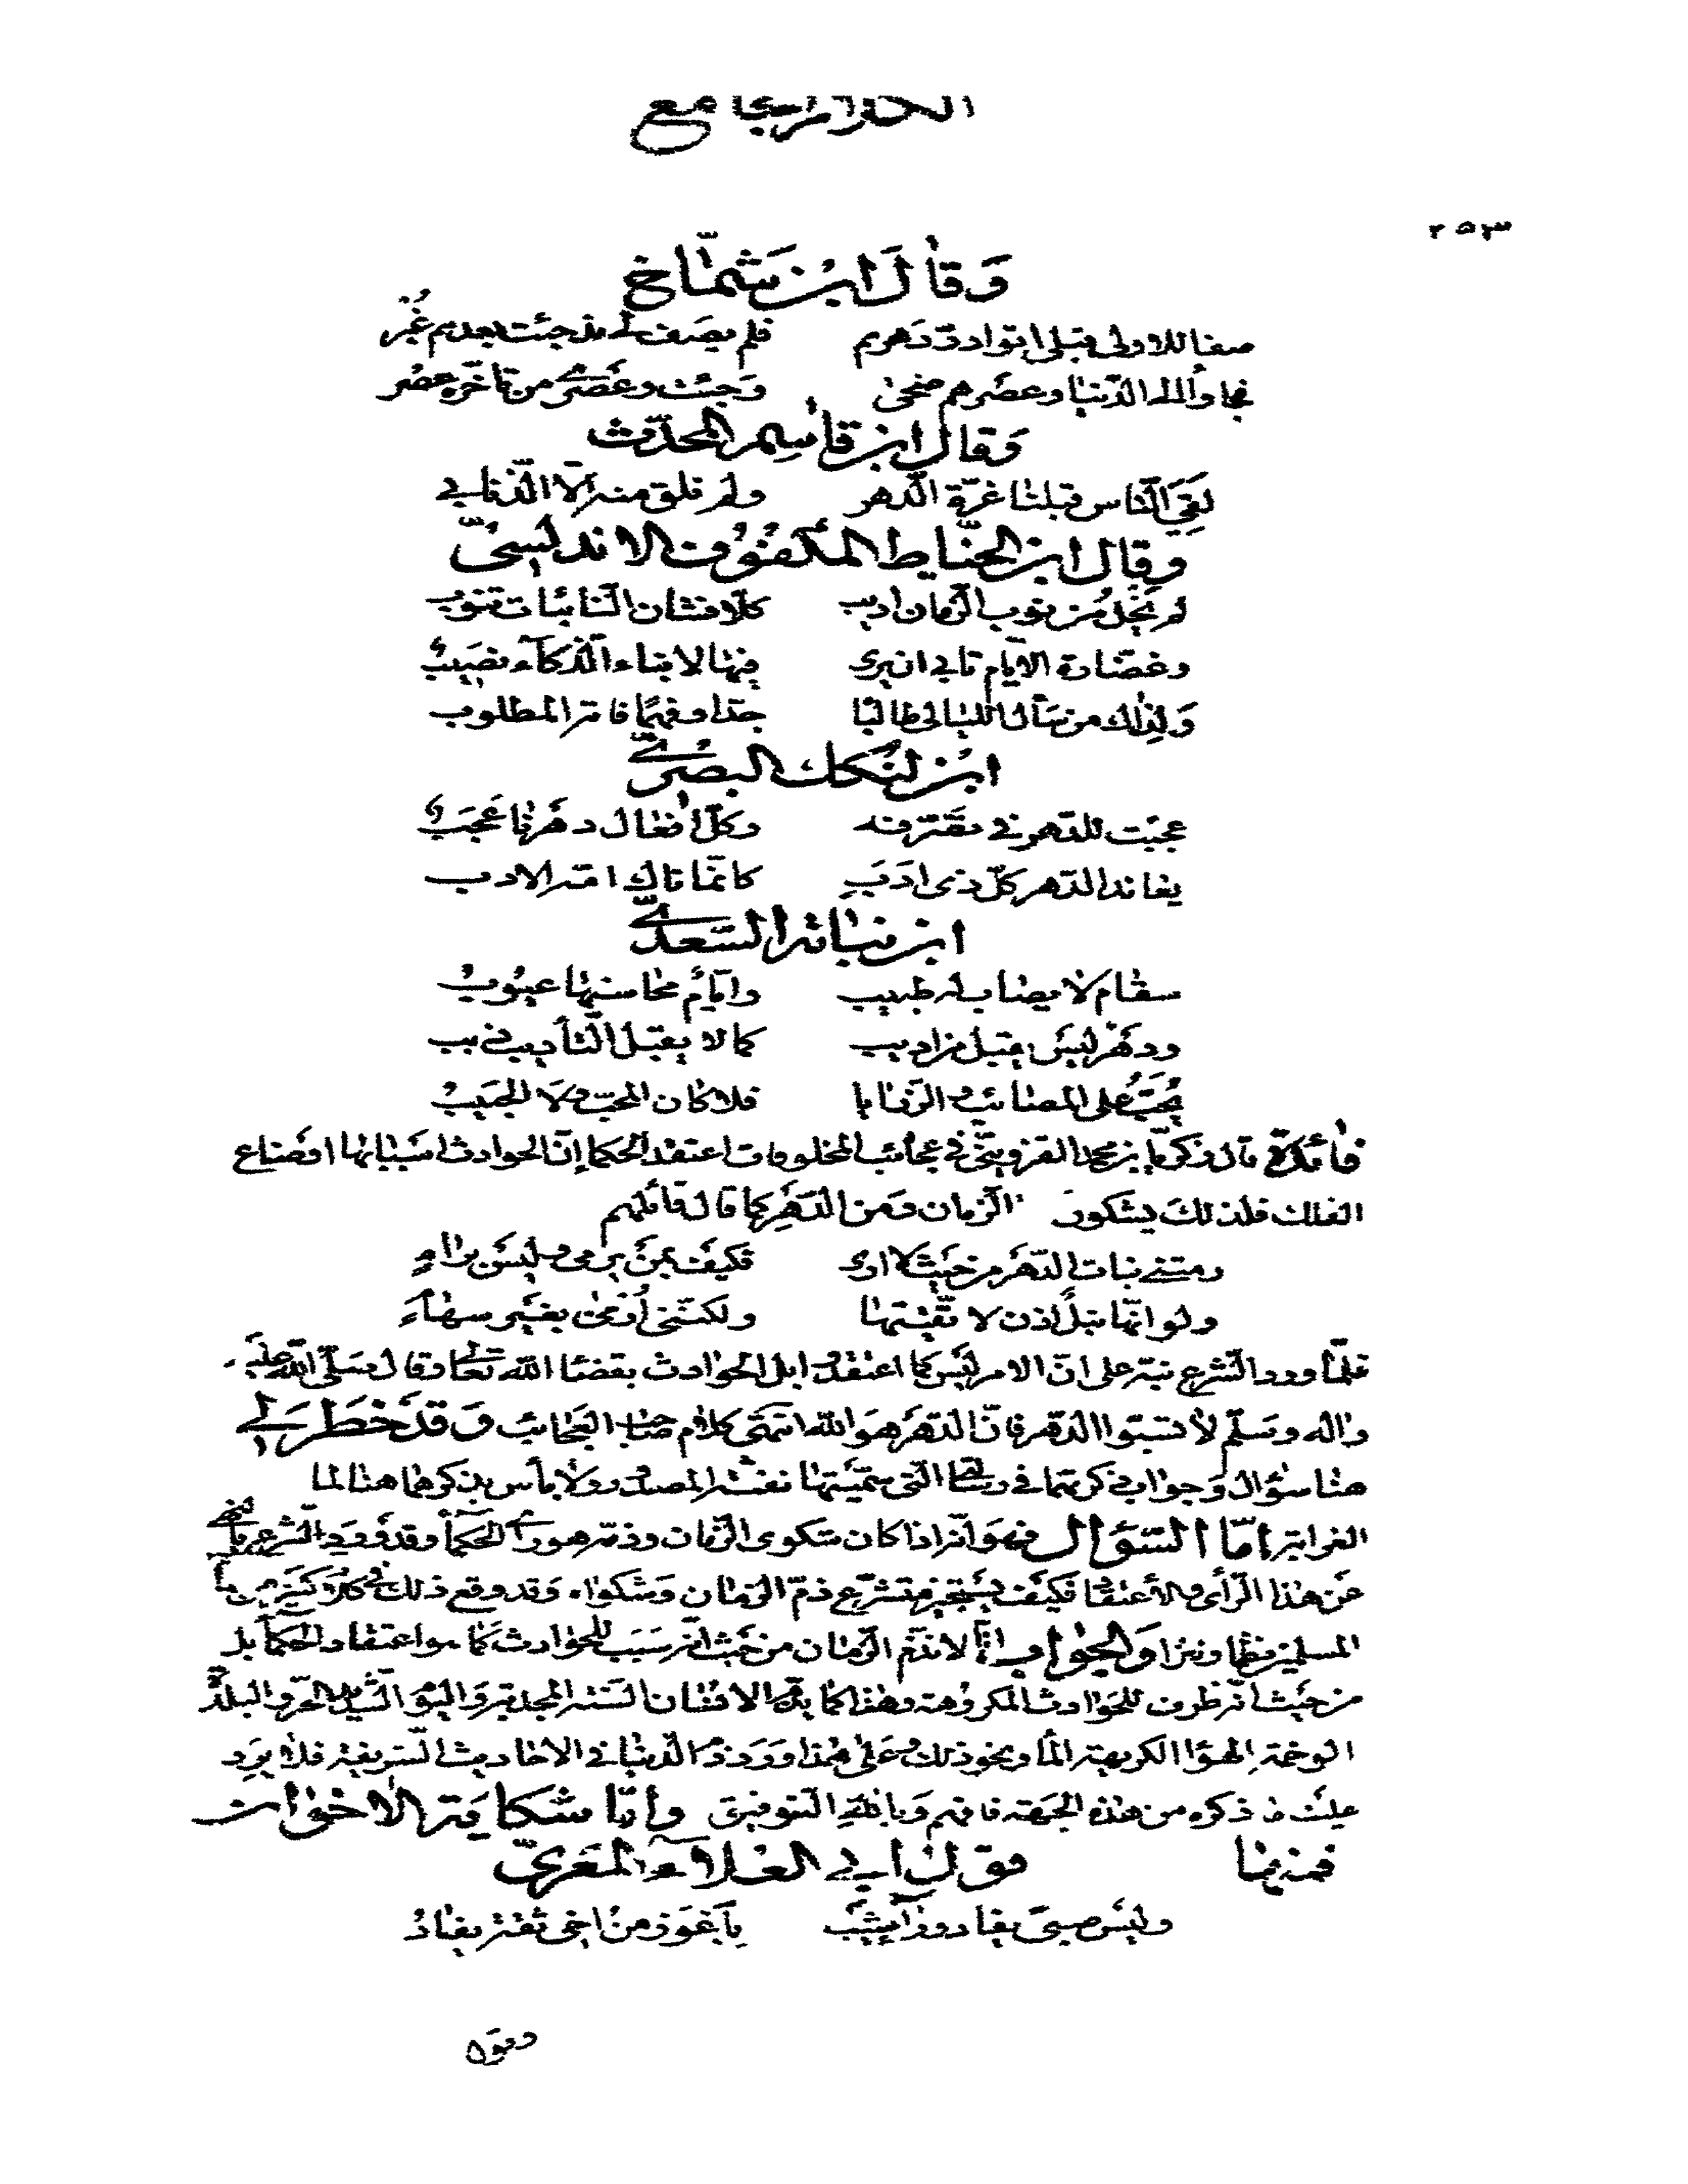 الكلام الجامع
٢٥٣
وَقالَ ابن شمّاخ
صفا للاولى قبلى اتوا درّ دهرهم فلم يصف لى مذ جئت بعدهم غُبر
فجاؤا الى الدّنيا وعصرهم ضحىٰ وجئت وعصرى من تأخّره عصر
وقال ابن قاسم المحدّث
لقى النّاس قبلنا غرّة الدّهر ولم نلق منه الّا الذّنابى
وقال ابن الحنّاط المكفوف الاندلسىّ
لم يخل من نوب الزّمان اديب كلّا فشان النّائبات تنوب
وغضارة الايّام تابى ان يرى فيها لابناء الذّكآء نصيب
وَلذٰلك من سأل اللّيالى طالبًا جدّا وفهمًا فاته المطلوب
ابن لنكك البصرىّ
عجبت للدّهر فى تصرّفه وكلّ افعال دهرنا عجب
يعاند الدّهر كلّ ذى ادب كانّما ناك امّه الادب
ابن نباته السّعدىّ
سقام لا يصاب له طبيب وايّام محاسنها عيوب
ودهر ليس يقبل من اديب كما لا يقبل التّأديب ذيب
يُحبّ على المصائب والرّزايا فلا كان المحبّ ولا الحبيب
فائدة قال زكريّا بن محمد القزوينىّ فى عجائب المخلوقات اعتقد الحكما انّ الحوادث اسبابها اوضاع
الفلك فلذلك يشكون الزمان ومن الدّهر كما قال قائلهم
رمتنى بنات الدّهر من حيث لا ارى فكيف بمن يرمى وليس برام
ولو انّها نبل اذن لا تّقيتها ولكنّنى اُرمىٰ بغير سهام
فلمّا ورد الشّرع نبّه على انّ الامر ليس كما اعتقدوا بل الحوادث بقضا الله تعالى وقال صلّى الله عليه
واله وسلّم لا تسبّوا الدّهر فانّ الدّهر هو الله انتهى كلام صاحب العجائب وَقد خطر لى
هنا سؤال وجواب ذكرتهما فى رسالتى الّتى سمّيتها نفثة المصدور ولا بأس بذكرهما هنا لما
الغرابة امّا السّؤال فهو انّه اذا كان شكوى الزّمان وذمّه هو راى الحكمآ وقد ورد الشّرع بالنّهى
عن هذا الرّأى والاعتقاد فكيف يستجيز متشرّع ذمّ الزمان وشكواه وقد وقع ذلك فى كلام كثير من
المسلمين نظما ونثرا وَالجواب انّا لا نذمّ الزّمان من حيث انّه سبب للحوادث كما هو اعتقاد الحكمآ بل
من حيث انّه ظرف للحوادث المكروهة وهذا كما يذمّ الانسان السّنة المجدبة واليوم الشّديد الحرّ والبلدة
الوخمة الهوا الكريهة المآ ونحو ذلك وعلى هذا ورد ذمّ الدّنيا فى الاحاديث الشّريفة فلا يرد
علينا ما ذكره من هذه الجهة فافهم وبالله التوفيق وأمّا شكاية الاخوان
فمنها قول ابى العلآء المعرىّ
وليس صبى يفاد وراء شيب باعوز من اخى ثقة يفاد